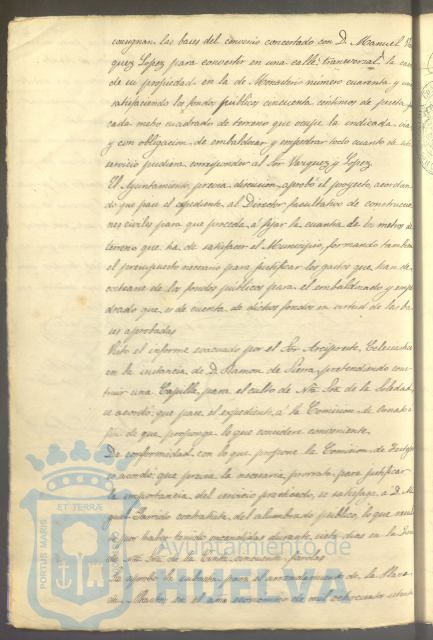 consignan las bases del convenio concertado con D. Manuel
quez Lopez para convertir en una calle transversal la casa
de su propiedad en la de Monasterio número cuarenta y uno
satisfaciendo los fondos públicos cincuenta centimos de peseta p.r
cada metro cuadrado de terreno que ocupe la indicada via
y con obligacion de embaldosar y empedrar todo cuanto de este
servicio pudiera corresponder al Sor Vazquez y Lopez
El Ayuntamiento previa discusion aprobó el proyecto, acordan-
do que pase el espediente al Director facultativo de construccio-
nes civiles para que proceda á fijar la cuantia de los metros de
terreno que ha de satisfacer el Municipio, formando tambien
el presupuesto necesario para justificar los gastos que han de
costearse de los fondos públicos para el embaldosado y empe-
drado que es de cuenta de dichos fondos en virtud de las ba-
ses aprobadas
Visto el informe evacuado por el Sor Arcipreste
en la instancia de D. Ramon de Sierra, pretendiendo cons-
truir una Capilla, para el culto de Ntra Sra de la Soledad,
se acordó que pase el espediente á la Comision de Ornato
fin de que proponga lo que considere conveniente.
De conformidad con lo que propone la Comision de Festejos
se acordó que previa la necesaria prorrata para justificar
la importancia del servicio practicado, se satisfaga á D. Mi-
guel Garrido contratista del alumbrado público, lo que
por haber tenido encendidas durante siete dias en la
de Ntra Sra de la Cinta, cincuenta farolas.
Se aprobó la subasta para el arrendamiento de la Plaza
de Abastos en el año economico de mil ochocientos ochenta
PORTUS MARIS
ET TERRAE
Ayuntamiento de
HUELVA